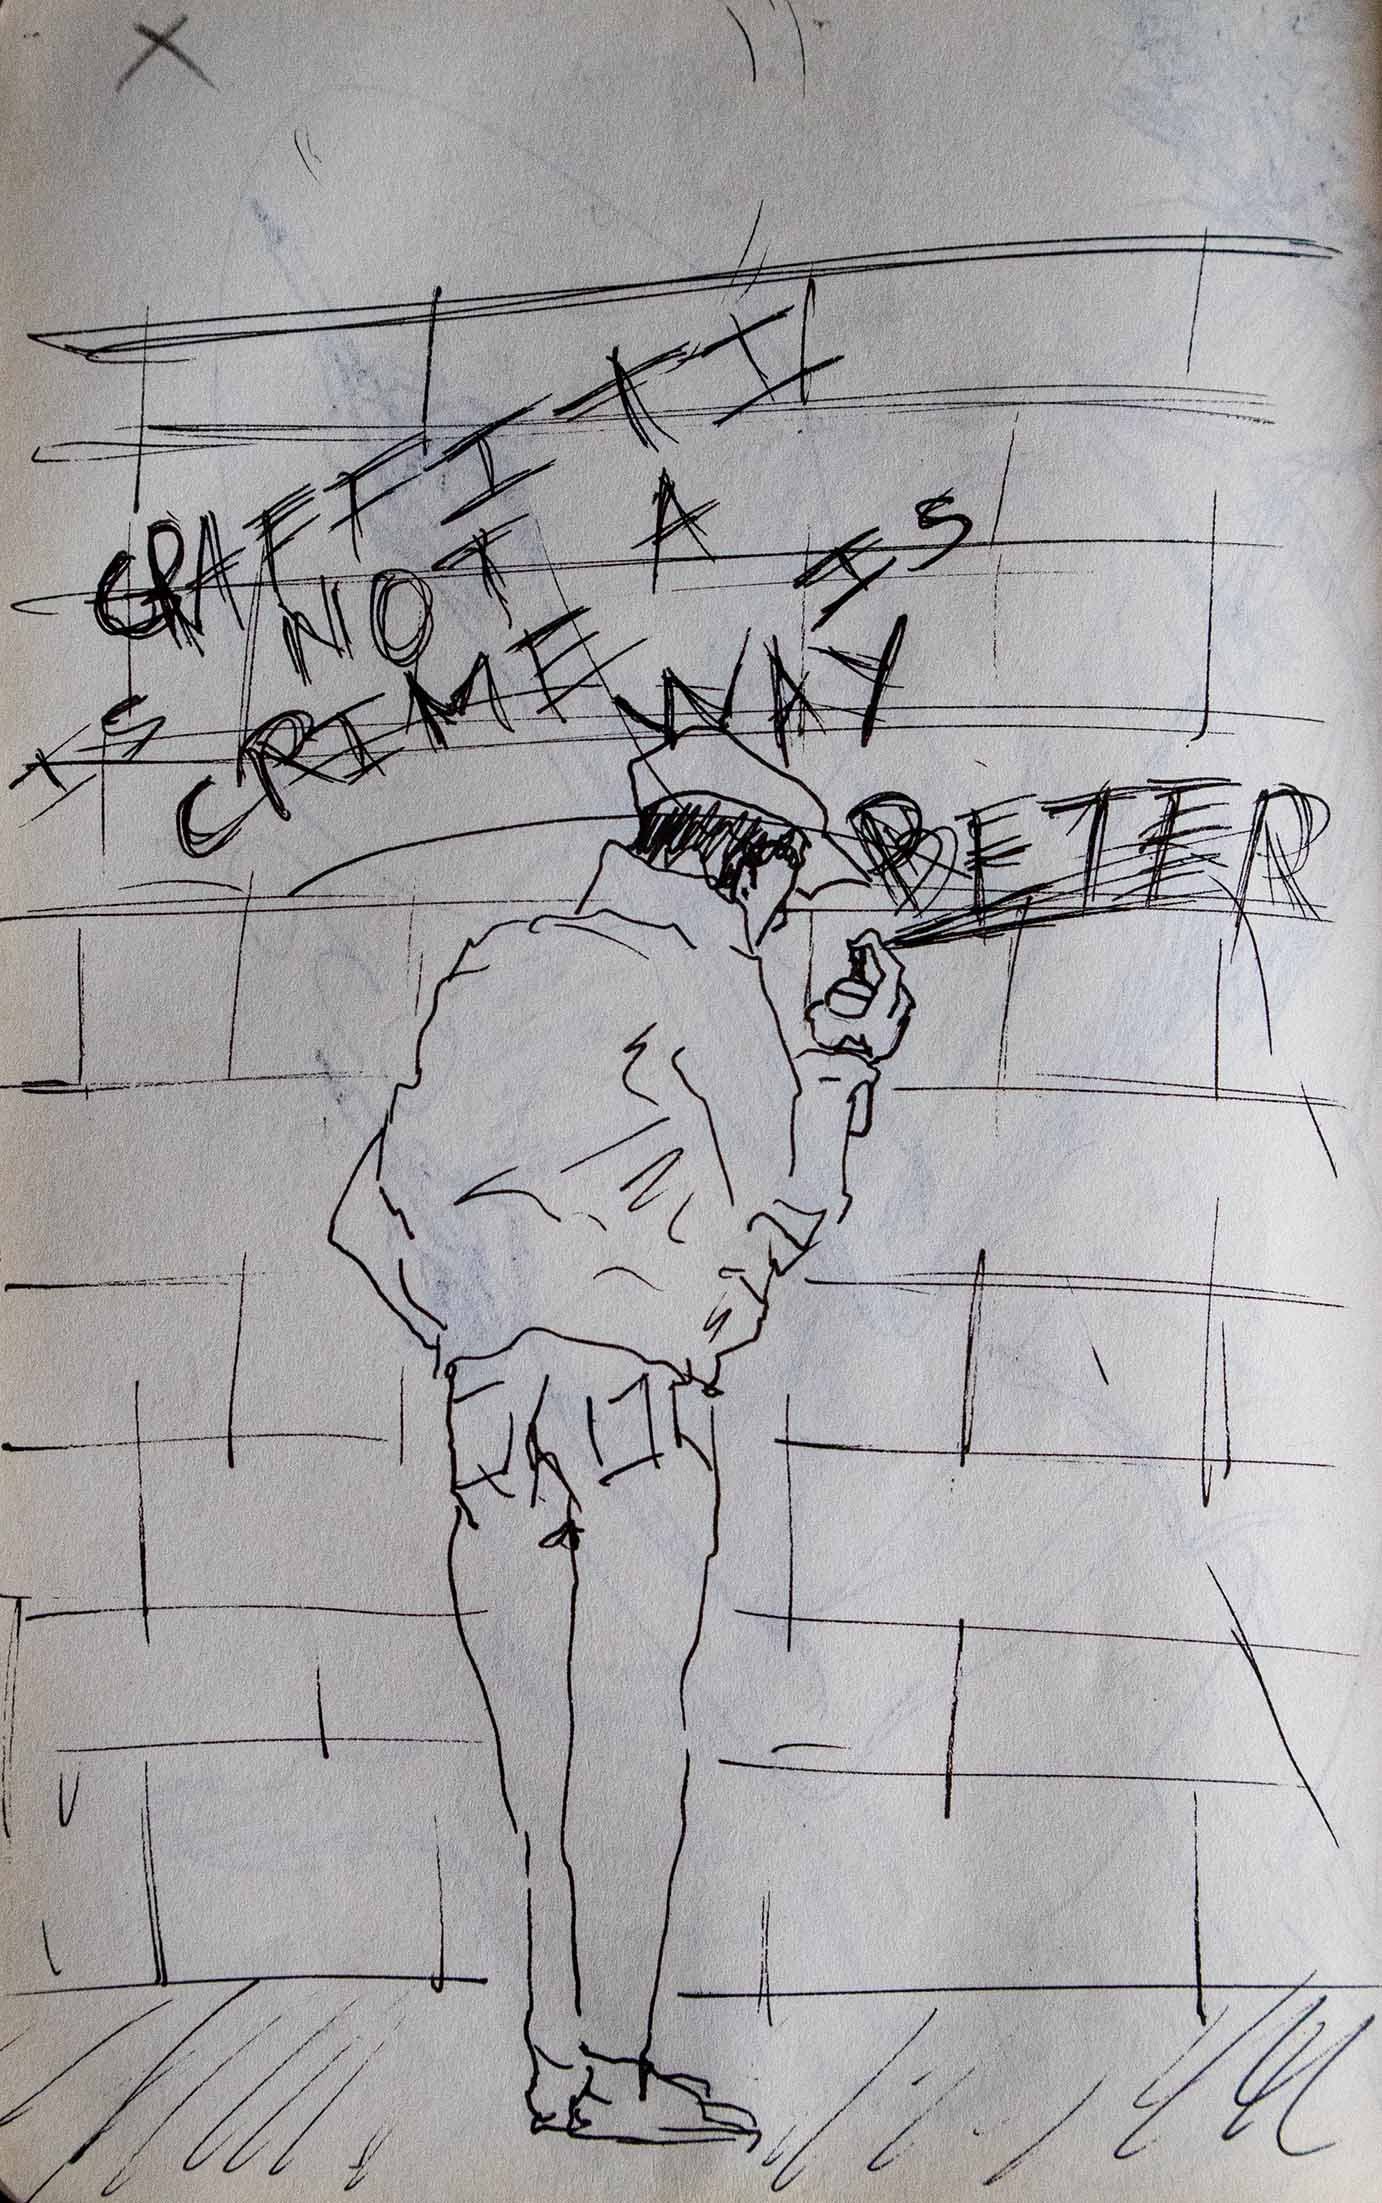 GRAFFITI
IS NOT A
CRIME
IS
WAY
BETER